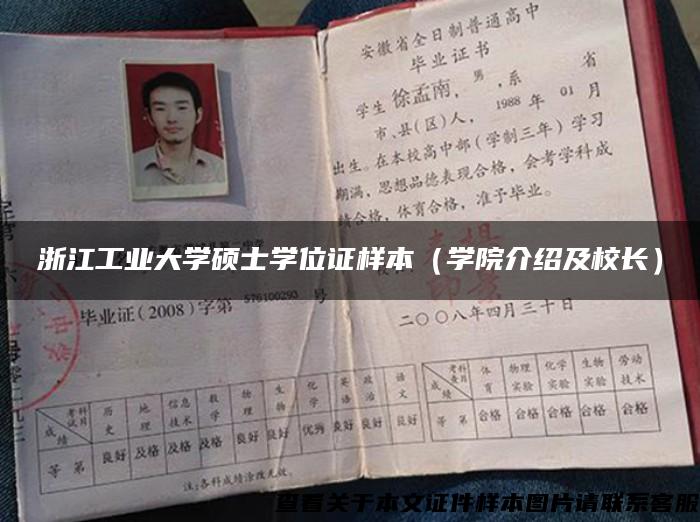 安徽省全日制普通高中
毕业证书
学生徐孟南，男，系 省
市、县(区)人，1988年01月
出生。在本校高中部(学制三年)学习
期满，思想品德表现合格，会考学科成
绩合格，体育合格，准予毕业。
浙江工业大学硕士学位证样本（学院介绍及校长）
毕业证(2008)字第576100293号
二〇〇八年四月三十日
考试科目 历史 地理 信息技术 数学 物理 生物 化学 英语 政治 语文
成绩 等第 良好 及格 及格 及格 良好 良好 优秀 良好 良好 良好
注:各科成绩涂改无效。
考查科目 体育 物理实验 化学实验 生物实验 劳动技术
成绩 等第 合格 合格 合格 合格 合格
查看关于本文证件样本图片请联系客服